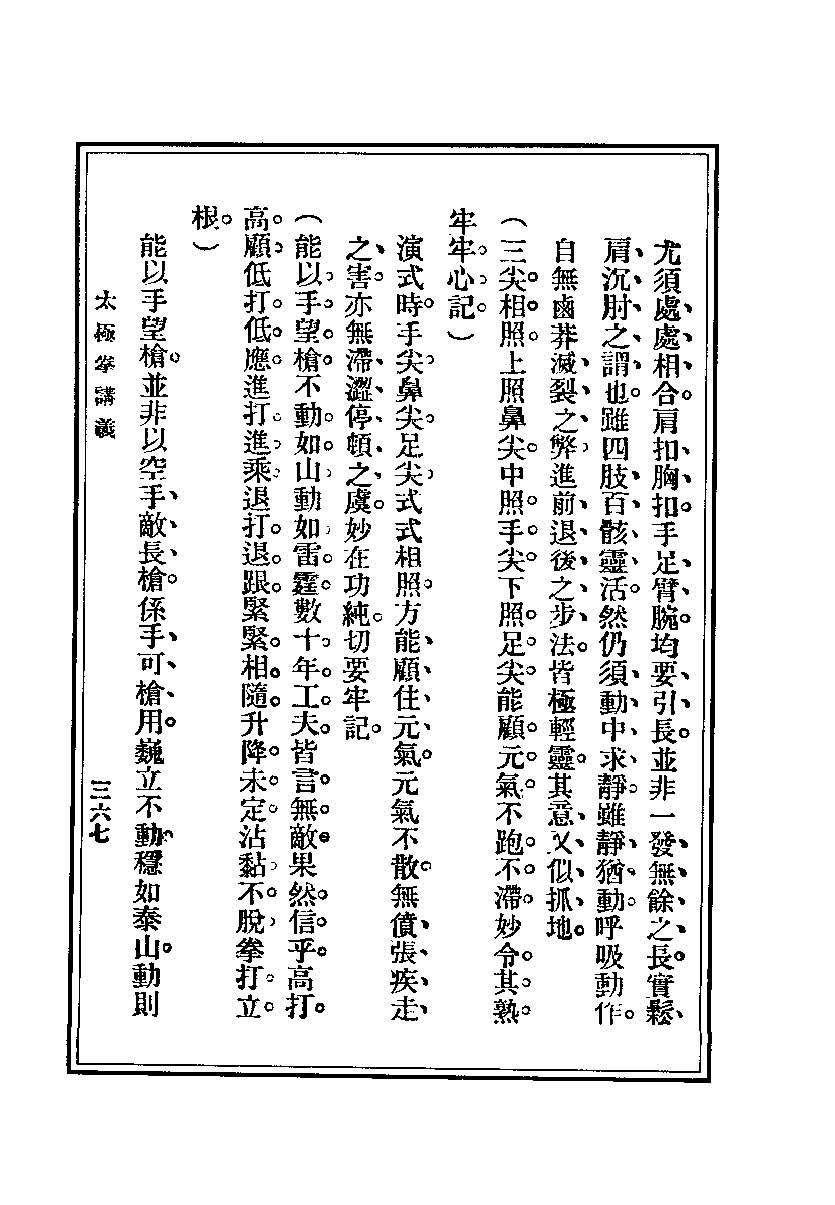 尤須處處相合。肩扣胸扣。手足臂腕。均要引長。並非一發無餘之長。實鬆
肩沉肘之謂也。雖四肢百骸靈活。然仍須動中求靜。雖靜猶動。呼吸動作。
自無鹵莽滅裂之弊。進前退後之步法。皆極輕靈。其意又似抓地。
（三尖相照。上照鼻尖。中照手尖。下照足尖。能顧元氣。不跑不滯。妙令其熟。
牢牢心記。）
演式時。手尖鼻尖足尖。式式相照。方能顧住元氣。元氣不散。無僨張疾走
之害。亦無滯澀停頓之虞。妙在功純。切要牢記。
（能以手望槍。不動如山。動如雷霆。數十年工夫。皆言無敵。果然信乎。高打
高顧。低打低應。進打進乘。退打退跟。緊緊相隨。升降未定。沾黏不脫。拳打立
根。）
能以手望槍。並非以空手敵長槍。係手可槍用。巍立不動。穩如泰山。動則
太極拳講義
三六七